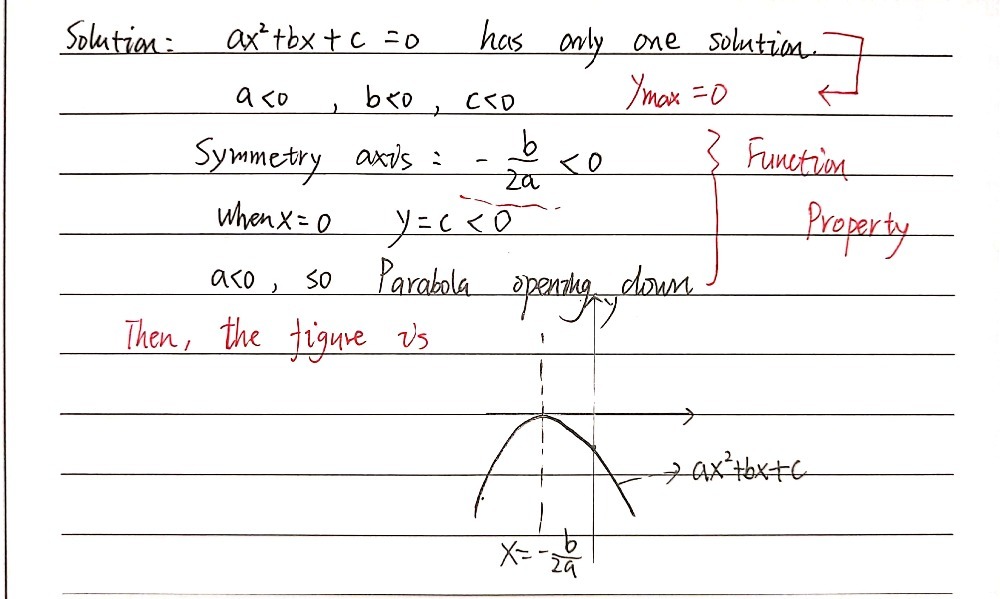 Solution: ax²+bx+c =0 has only one solution.
a<0 , b<0 , c<0 Ymax =0
Symmetry axis : - b/2a <0 } Function
when x=0 y=c<0 Property
a<0 , so Parabola opening down
Then, the figure is
y
ax²+bx+c
X=-b/2a